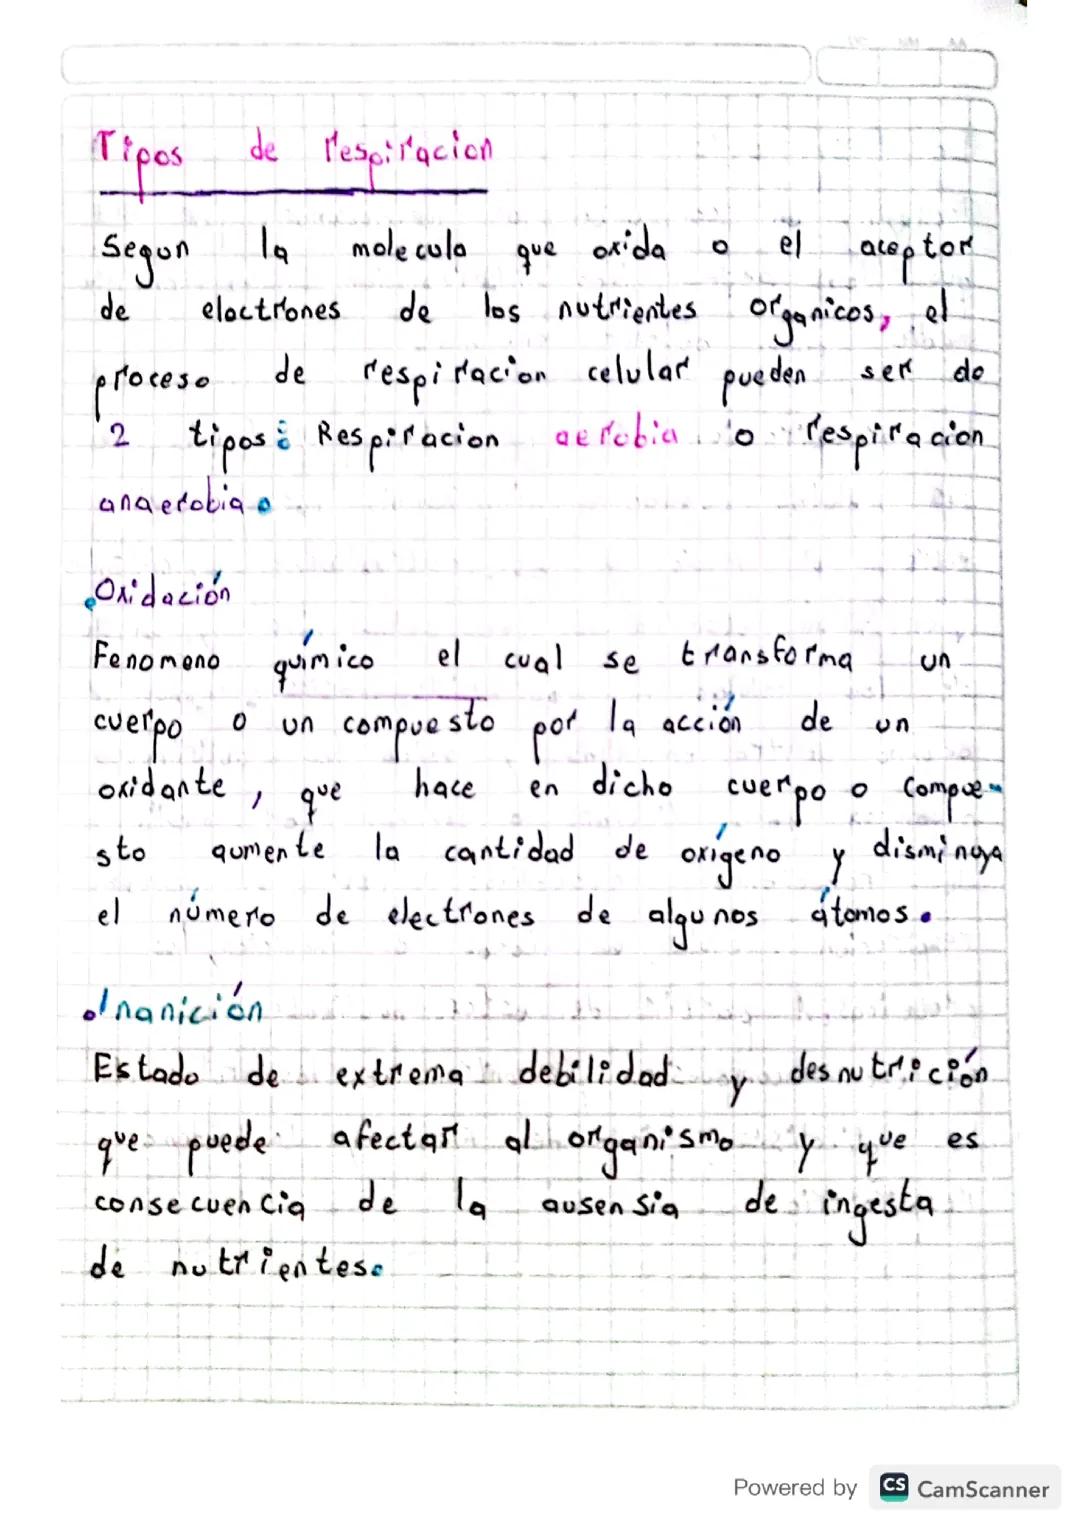 Tipos de respiracion
Segun la molecula que oxida o el aceptor
de electrones de los nutrientes organicos, el
proceso de respiracion celular pueden ser de
2 tipos: Respiracion aerobia o respiracion
anaerobia.
Oxidación
Fenomeno químico el cual se transforma un
cuerpo o un compuesto por la acción de un
oxidante, que hace en dicho cuerpo o compue-
sto aumente la cantidad de oxígeno y disminuya
el número de electrones de algunos átomos.
Inanición
Estado de extrema debilidad y desnutrición
que puede afectar al organismo y que es
consecuencia de la ausensia de ingesta
de nutrientes.
Powered by CS CamScanner